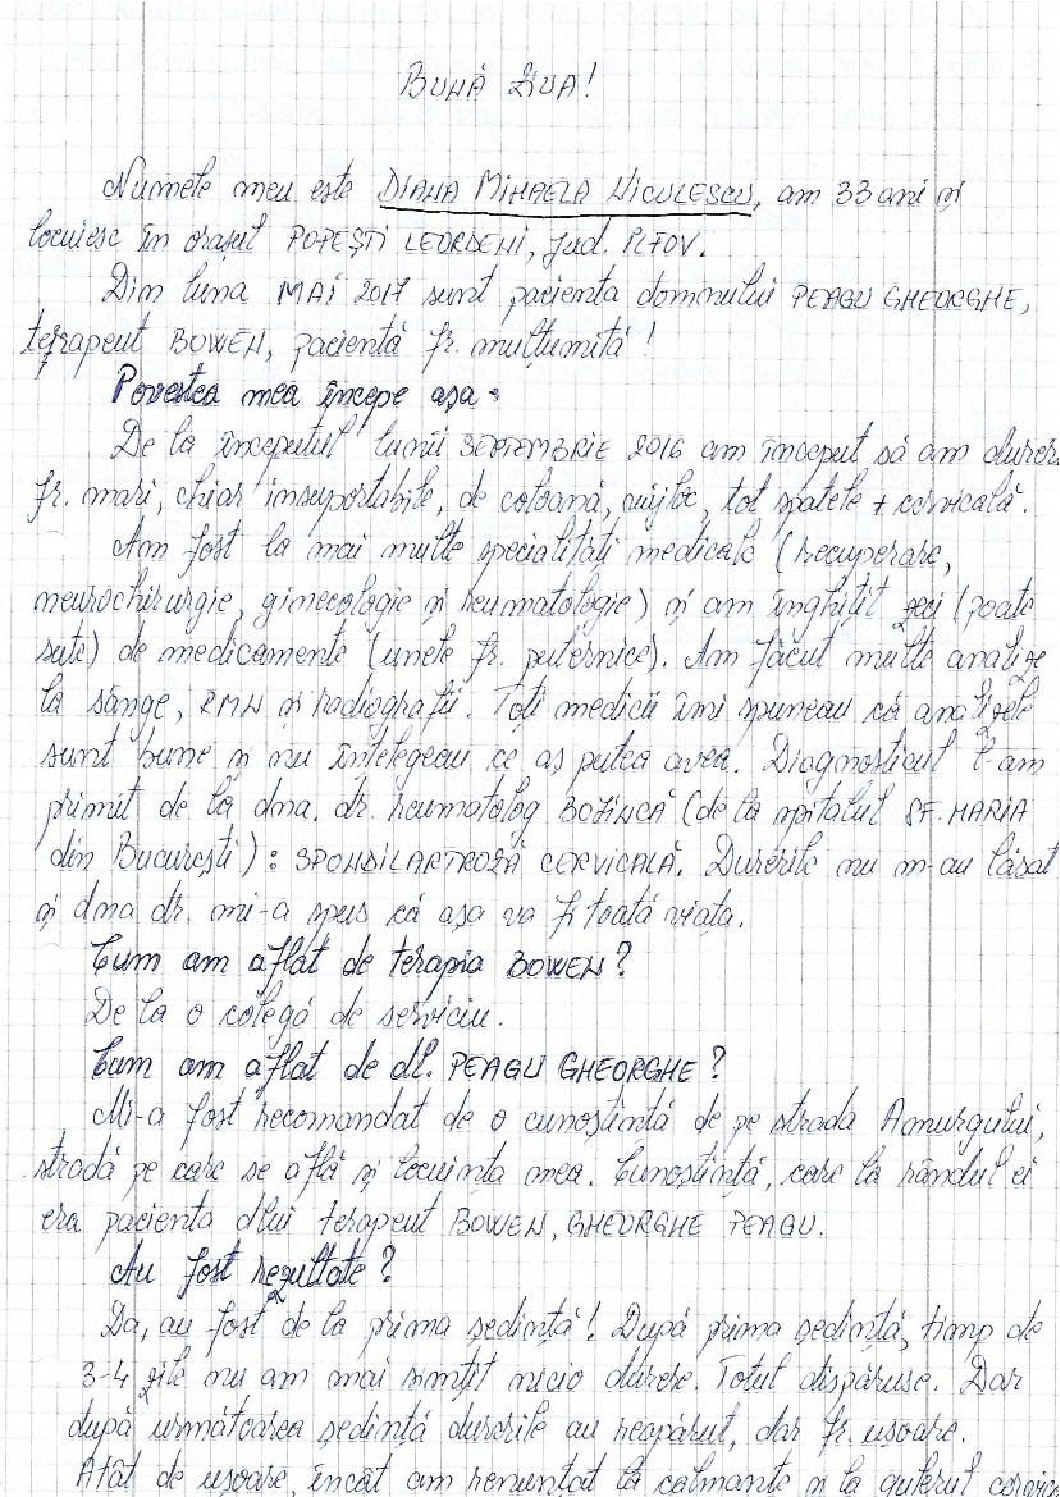 BUNĂ ZIUA!
Numele meu este DIANA MIHAELA NICULESCU, am 33 ani și
locuiesc în orașul POPEȘTI LEORDENI, jud. ILFOV.
Din luna MAI 2017 sunt pacienta domnului PEAGU GHEORGHE,
terapeut BOWEN, pacientă fr. mulțumită!
Povestea mea începe așa:
De la începutul lunii SEPTEMBRIE 2016 am început să am dureri
fr. mari, chiar insuportabile, de coloană, mijloc, tot spatele + cervicală.
Am fost la mai multe specialități medicale (recuperare,
neurochirurgie, ginecologie și reumatologie) și am înghițit zeci (poate
sute) de medicamente (unele fr. puternice). Am făcut multe analize
la sânge, RMN și radiografii. Toți medicii îmi spuneau că analizele
sunt bune și nu înțelegeau ce aș putea avea. Diagnosticul l-am
primit de la dna. dr. reumatolog BOJINCĂ (de la spitalul SF. MARIA
din București): SPONDILARTROZĂ CERVICALĂ. Durerile nu m-au lăsat
și dna dr. mi-a spus că așa va fi toată viața.
Cum am aflat de terapia BOWEN?
De la o colegă de serviciu.
Cum am aflat de dl. PEAGU GHEORGHE?
Mi-a fost recomandat de o cunoștință de pe strada Amurgului,
stradă pe care se află și locuința mea. Cunoștință, care la rândul ei
era pacienta dlui terapeut BOWEN, GHEORGHE PEAGU.
Au fost rezultate?
Da, au fost de la prima ședință! După prima ședință, timp de
3-4 zile nu am mai simțit nicio durere. Totul dispăruse. Dar
după următoarea ședință durerile au reapărut, dar fr. ușoare.
Atât de ușoare, încât am renunțat la calmante și la gulerul